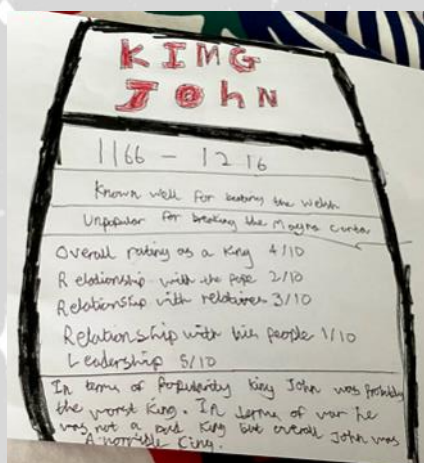 KIMG
JOhN
1166 - 1216
Known well for beating the Welsh
Unpopular for breaking the Magna carta
Overall rating as a King 4/10
Relationship with the Pope 2/10
Relationship with relatives 3/10
Relationship with his people 1/10
Leadership 5/10
In terms of Popularity King John was Probably
the worst King. In terms of war he
was not a bad King but overall John was
A horrible King.